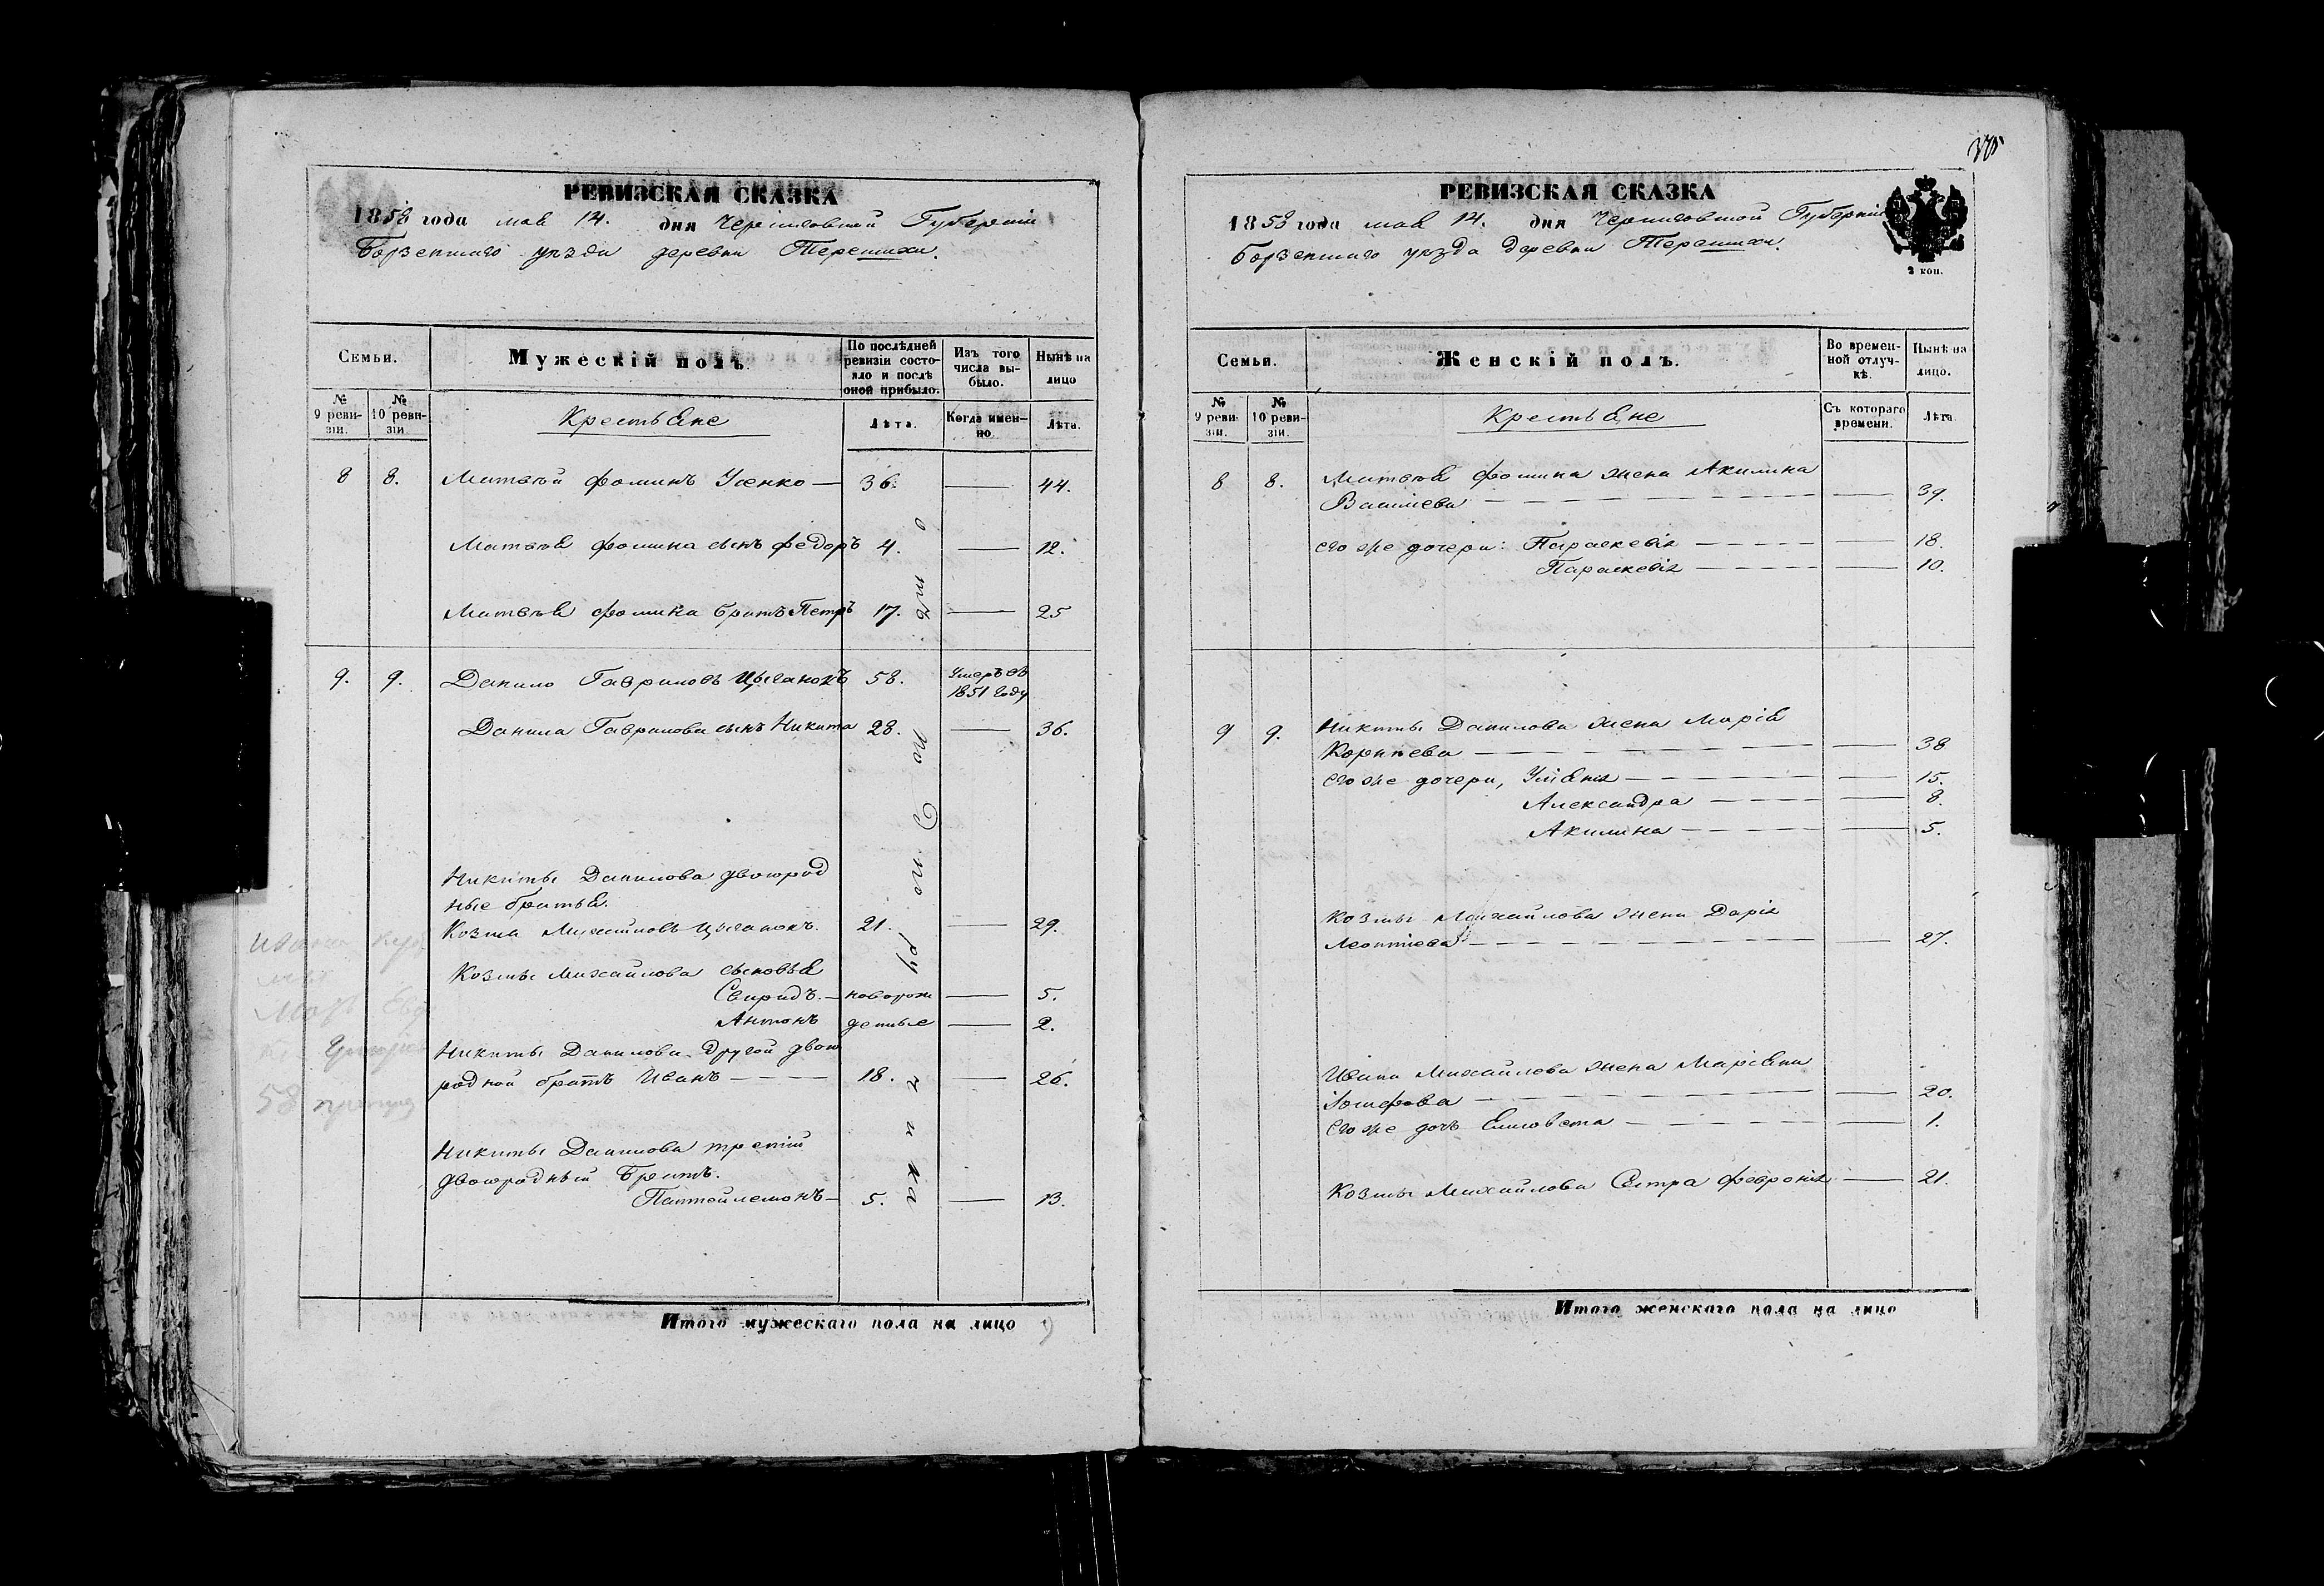 РЕВИЗСКАЯ СКАЗКА
1858 года мая 14. дня Черниговской Губерніи
Борзенскаго уѣзда деревни Терешихи.
Семьи.
Мужескій полъ.
По послѣдней ревизіи состояло и послѣ оной прибыло.
Изъ того числа выбыло.
Нынѣ на лицо
№ 9 ревизіи.
№ 10 ревизіи
Крестьяне
Лѣта.
Когда именно
Лѣта.
8 8. Матвѣй Фоминъ Усенко — 36. — 44.
Матвѣя Фомина сынъ Федоръ 4. — 12.
Матвѣя Фомина братъ Петръ 17. — 25
9. 9. Данило Гавриловъ Цыганокъ 58. Умеръ въ
1851 году
Данила Гаврилова сынъ Никита 28. — 36.
Никиты Данилова двоюрод
ные братья.
Козма Михайловъ Цыганокъ. 21. — 29.
Козмы Михайлова сыновья
Свиридъ. — новорож — 5.
Антонъ денные — 2.
Никиты Данилова другой двою
родной братъ Иванъ — 18. — 26.
Никиты Данилова третій
двоюродный братъ.
Пантейлемонъ — 5. — 13.
Итого мужескаго пола на лицо
РЕВИЗСКАЯ СКАЗКА
1858 года мая 14. дня Черниговской Губерніи
Борзенскаго уѣзда деревни Терешихи.
2 коп.
Семьи.
Женскій полъ.
Во временной отлучкѣ.
Нынѣ на лицо.
№ 9 ревизіи.
№ 10 ревизіи.
Крестьяне
Съ котораго времени.
Лѣта.
8 8. Матвѣя Фомина жена Акилина
Васильева — — 39.
его же дочери: Параскевія — — 18.
Параскевія — — 10.
9 9. Никиты Данилова жена Марія
Корнѣева — — 38
его же дочери, Ульянія — — 15.
Александра — — 8.
Акилина — — 5.
Козмы Михайлова жена Дарія
Леонтіева — — 27.
Ивана Михайлова жена Маріяна
Іосифова — — 20.
его же дочь Елисовета — — 1.
Козмы Михайлова Сестра Февронія — 21.
Итого женскаго пола на лицо